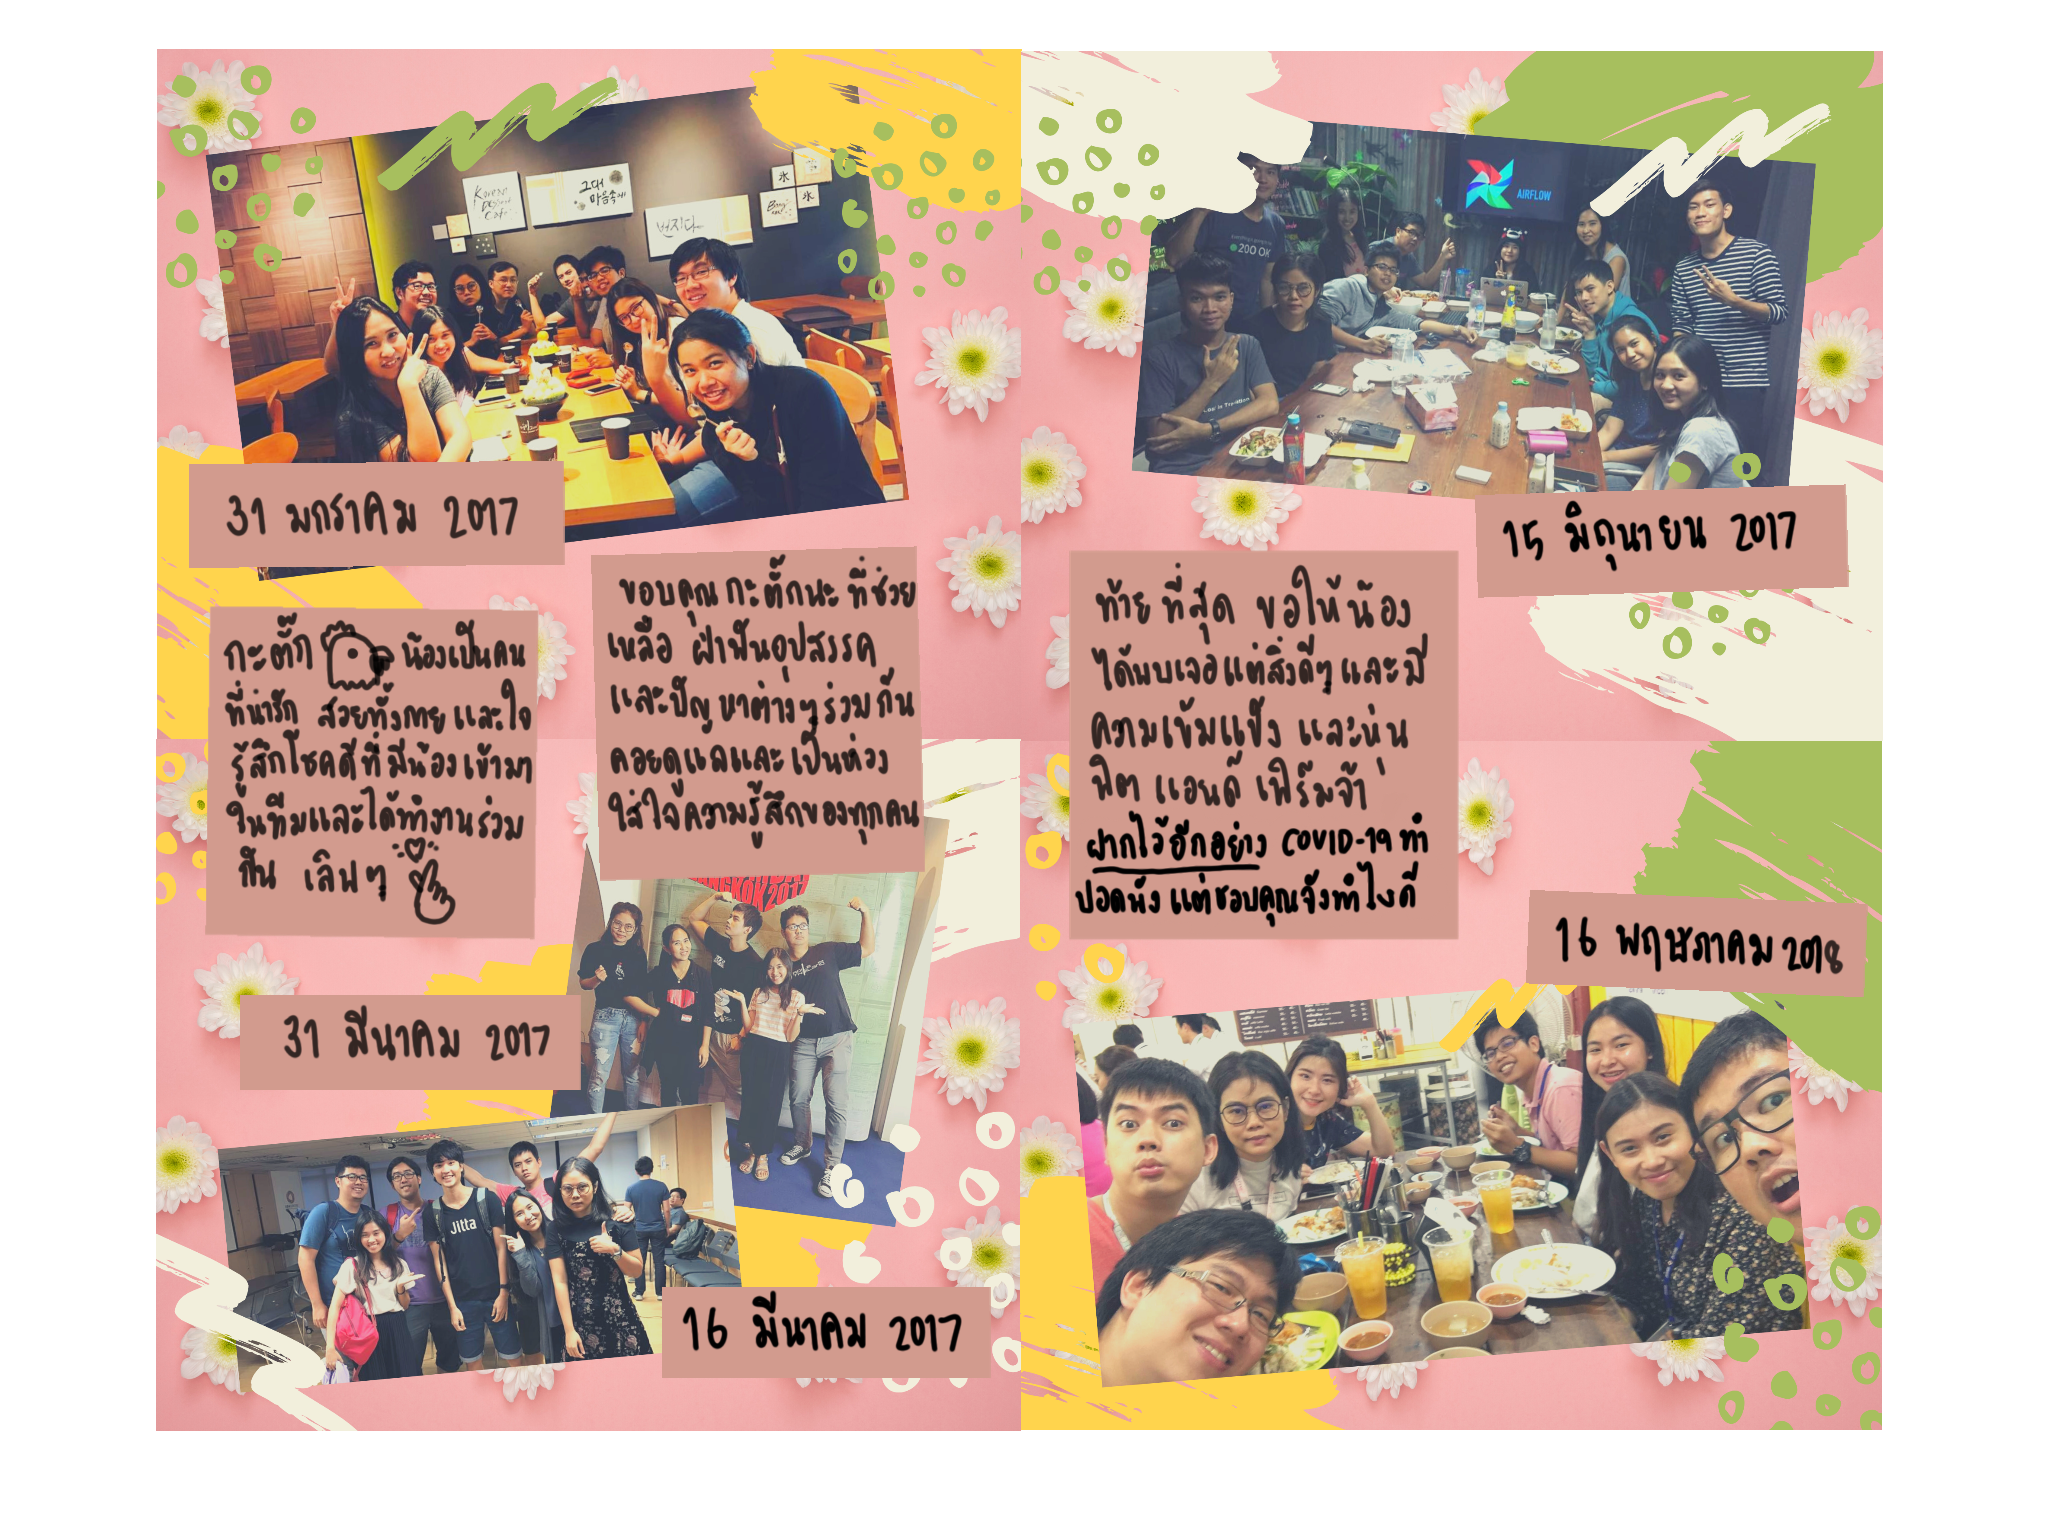 Korean
Dessert
Cafe
그대
마음속에
번지다
氷
氷
31 มกราคม 2017
กะตั๊ก น้องเป็นคน
ที่น่ารัก สวยทั้งกายและใจ
รู้สึกโชคดีที่มีน้องเข้ามา
ในทีมและได้ทำงานร่วม
กัน เลิฟๆ
ขอบคุณกะตั๊กนะ ที่ช่วย
เหลือ ฝ่าฟันอุปสรรค
และปัญหาต่างๆร่วมกัน
คอยดูแลและเป็นห่วง
ใส่ใจความรู้สึกของทุกคน
BANGKOK 2017
31 มีนาคม 2017
Jitta
16 มีนาคม 2017
AIRFLOW
200 OK
15 มิถุนายน 2017
ท้ายที่สุด ขอให้น้อง
ได้พบเจอแต่สิ่งดีๆและมี
ความเข้มแข็ง และหุ่น
ฟิต แอนด์ เฟิร์มจ้า
ฝากไว้อีกอย่าง COVID-19 ทำ
ปอดพัง แต่ชอบคุณจังทำไงดี
16 พฤษภาคม 2018